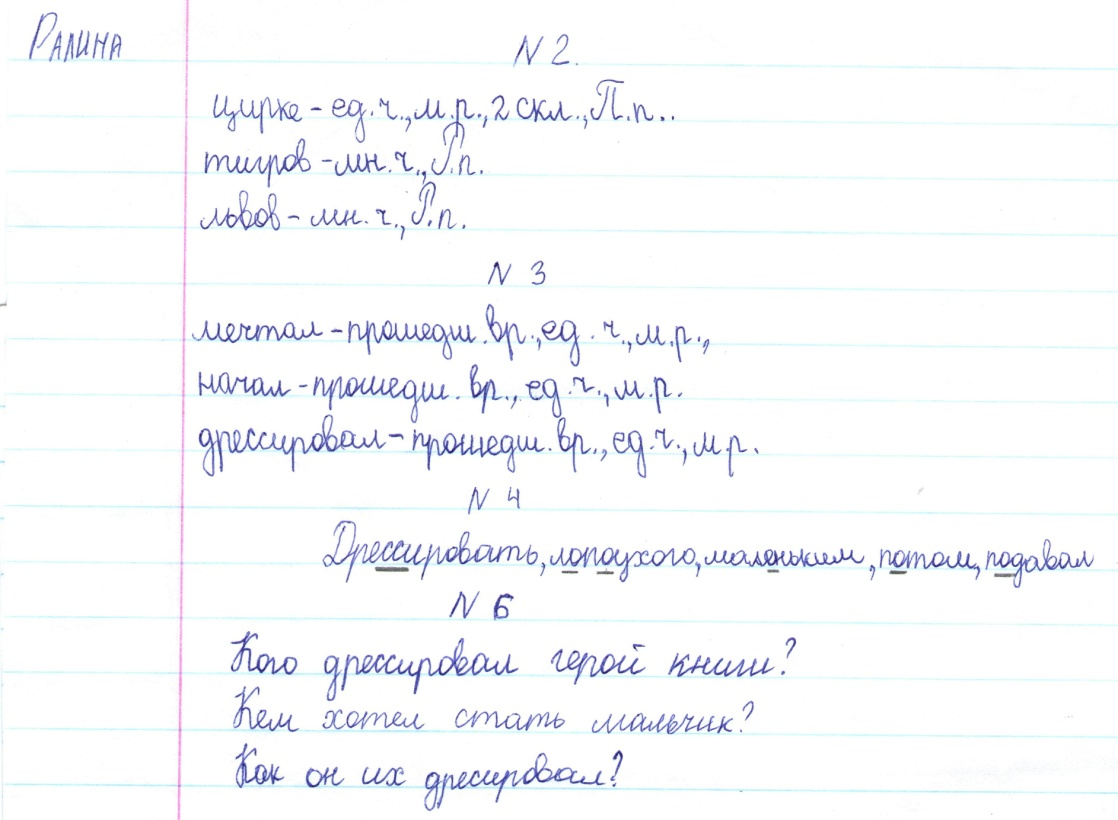 Ралина
N 2.
цирке - ед.ч., м.р., 2 скл., П.п..
тигров - мн.ч., Р.п.
львов - мн.ч., Р.п.
N 3
мечтал - прошедш.вр., ед.ч., м.р.,
начал - прошедш.вр., ед.ч., м.р.
дрессировал - прошедш.вр., ед.ч., м.р.
N 4
Дрессировать, лопоухого, маленьким, потом, подавал
N 6
Кого дрессировал герой книги?
Кем хотел стать мальчик?
Как он их дресировал?